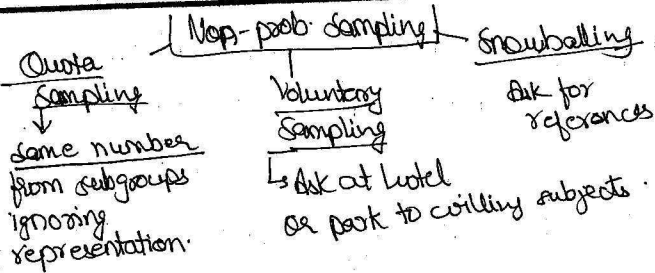 Non-prob. Sampling
Quota
Sampling
same number
from subgroups
ignoring
representation.
Voluntary
Sampling
Ask at hotel
or park to willing subjects.
Snowballing
Ask for
references